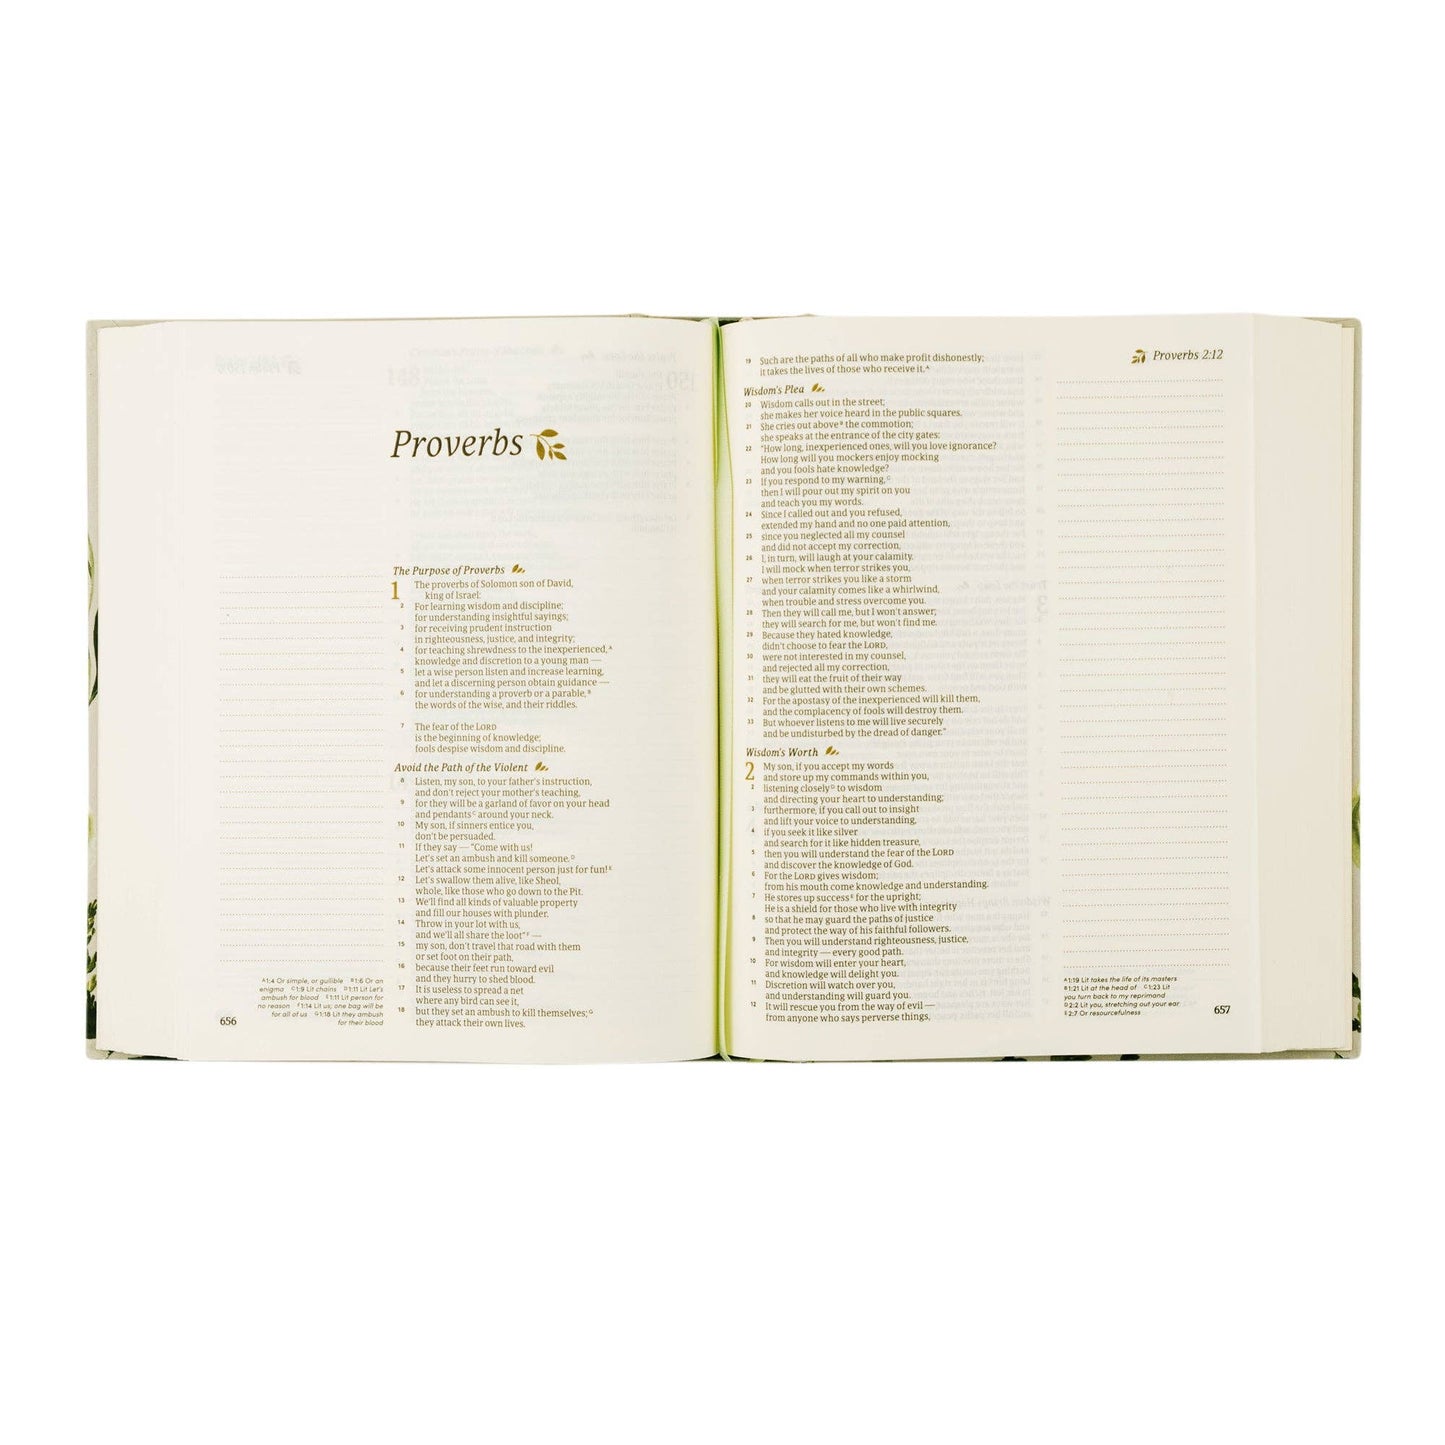 Proverbs
The Purpose of Proverbs
1 The proverbs of Solomon son of David,
king of Israel:
2 For learning wisdom and discipline;
for understanding insightful sayings;
3 for receiving prudent instruction
in righteousness, justice, and integrity;
4 for teaching shrewdness to the inexperienced,A
knowledge and discretion to a young man —
5 let a wise person listen and increase learning,
and let a discerning person obtain guidance —
6 for understanding a proverb or a parable,B
the words of the wise, and their riddles.
7 The fear of the LORD
is the beginning of knowledge;
fools despise wisdom and discipline.
Avoid the Path of the Violent
8 Listen, my son, to your father's instruction,
and don't reject your mother's teaching,
9 for they will be a garland of favor on your head
and pendantsC around your neck.
10 My son, if sinners entice you,
don't be persuaded.
11 If they say — "Come with us!
Let's set an ambush and kill someone.D
Let's attack some innocent person just for fun!E
12 Let's swallow them alive, like Sheol,
whole, like those who go down to the Pit.
13 We'll find all kinds of valuable property
and fill our houses with plunder.
14 Throw in your lot with us,
and we'll all share the loot"F —
15 my son, don't travel that road with them
or set foot on their path,
16 because their feet run toward evil
and they hurry to shed blood.
17 It is useless to spread a net
where any bird can see it,
18 but they set an ambush to kill themselves;G
they attack their own lives.
A1:4 Or simple, or gullible B1:6 Or an
enigma C1:9 Lit chains D1:11 Lit Let's
ambush for blood E1:11 Lit person for
no reason F1:14 Lit us; one bag will be
for all of us G1:18 Lit they ambush
for their blood
656
Proverbs 2:12
19 Such are the paths of all who make profit dishonestly;
it takes the lives of those who receive it.A
Wisdom's Plea
20 Wisdom calls out in the street;
she makes her voice heard in the public squares.
21 She cries out aboveB the commotion;
she speaks at the entrance of the city gates:
22 "How long, inexperienced ones, will you love ignorance?
How long will you mockers enjoy mocking
and you fools hate knowledge?
23 If you respond to my warning,C
then I will pour out my spirit on you
and teach you my words.
24 Since I called out and you refused,
extended my hand and no one paid attention,
25 since you neglected all my counsel
and did not accept my correction,
26 I, in turn, will laugh at your calamity.
I will mock when terror strikes you,
27 when terror strikes you like a storm
and your calamity comes like a whirlwind,
when trouble and stress overcome you.
28 Then they will call me, but I won't answer;
they will search for me, but won't find me.
29 Because they hated knowledge,
didn't choose to fear the LORD,
30 were not interested in my counsel,
and rejected all my correction,
31 they will eat the fruit of their way
and be glutted with their own schemes.
32 For the apostasy of the inexperienced will kill them,
and the complacency of fools will destroy them.
33 But whoever listens to me will live securely
and be undisturbed by the dread of danger."
Wisdom's Worth
2 My son, if you accept my words
and store up my commands within you,
2 listening closelyD to wisdom
and directing your heart to understanding;
3 furthermore, if you call out to insight
and lift your voice to understanding,
4 if you seek it like silver
and search for it like hidden treasure,
5 then you will understand the fear of the LORD
and discover the knowledge of God.
6 For the LORD gives wisdom;
from his mouth come knowledge and understanding.
7 He stores up successE for the upright;
He is a shield for those who live with integrity
8 so that he may guard the paths of justice
and protect the way of his faithful followers.
9 Then you will understand righteousness, justice,
and integrity — every good path.
10 For wisdom will enter your heart,
and knowledge will delight you.
11 Discretion will watch over you,
and understanding will guard you.
12 It will rescue you from the way of evil —
from anyone who says perverse things,
A1:19 Lit takes the life of its masters
B1:21 Lit at the head of C1:23 Lit
you turn back to my reprimand
D2:2 Lit you, stretching out your ear
E2:7 Or resourcefulness
657